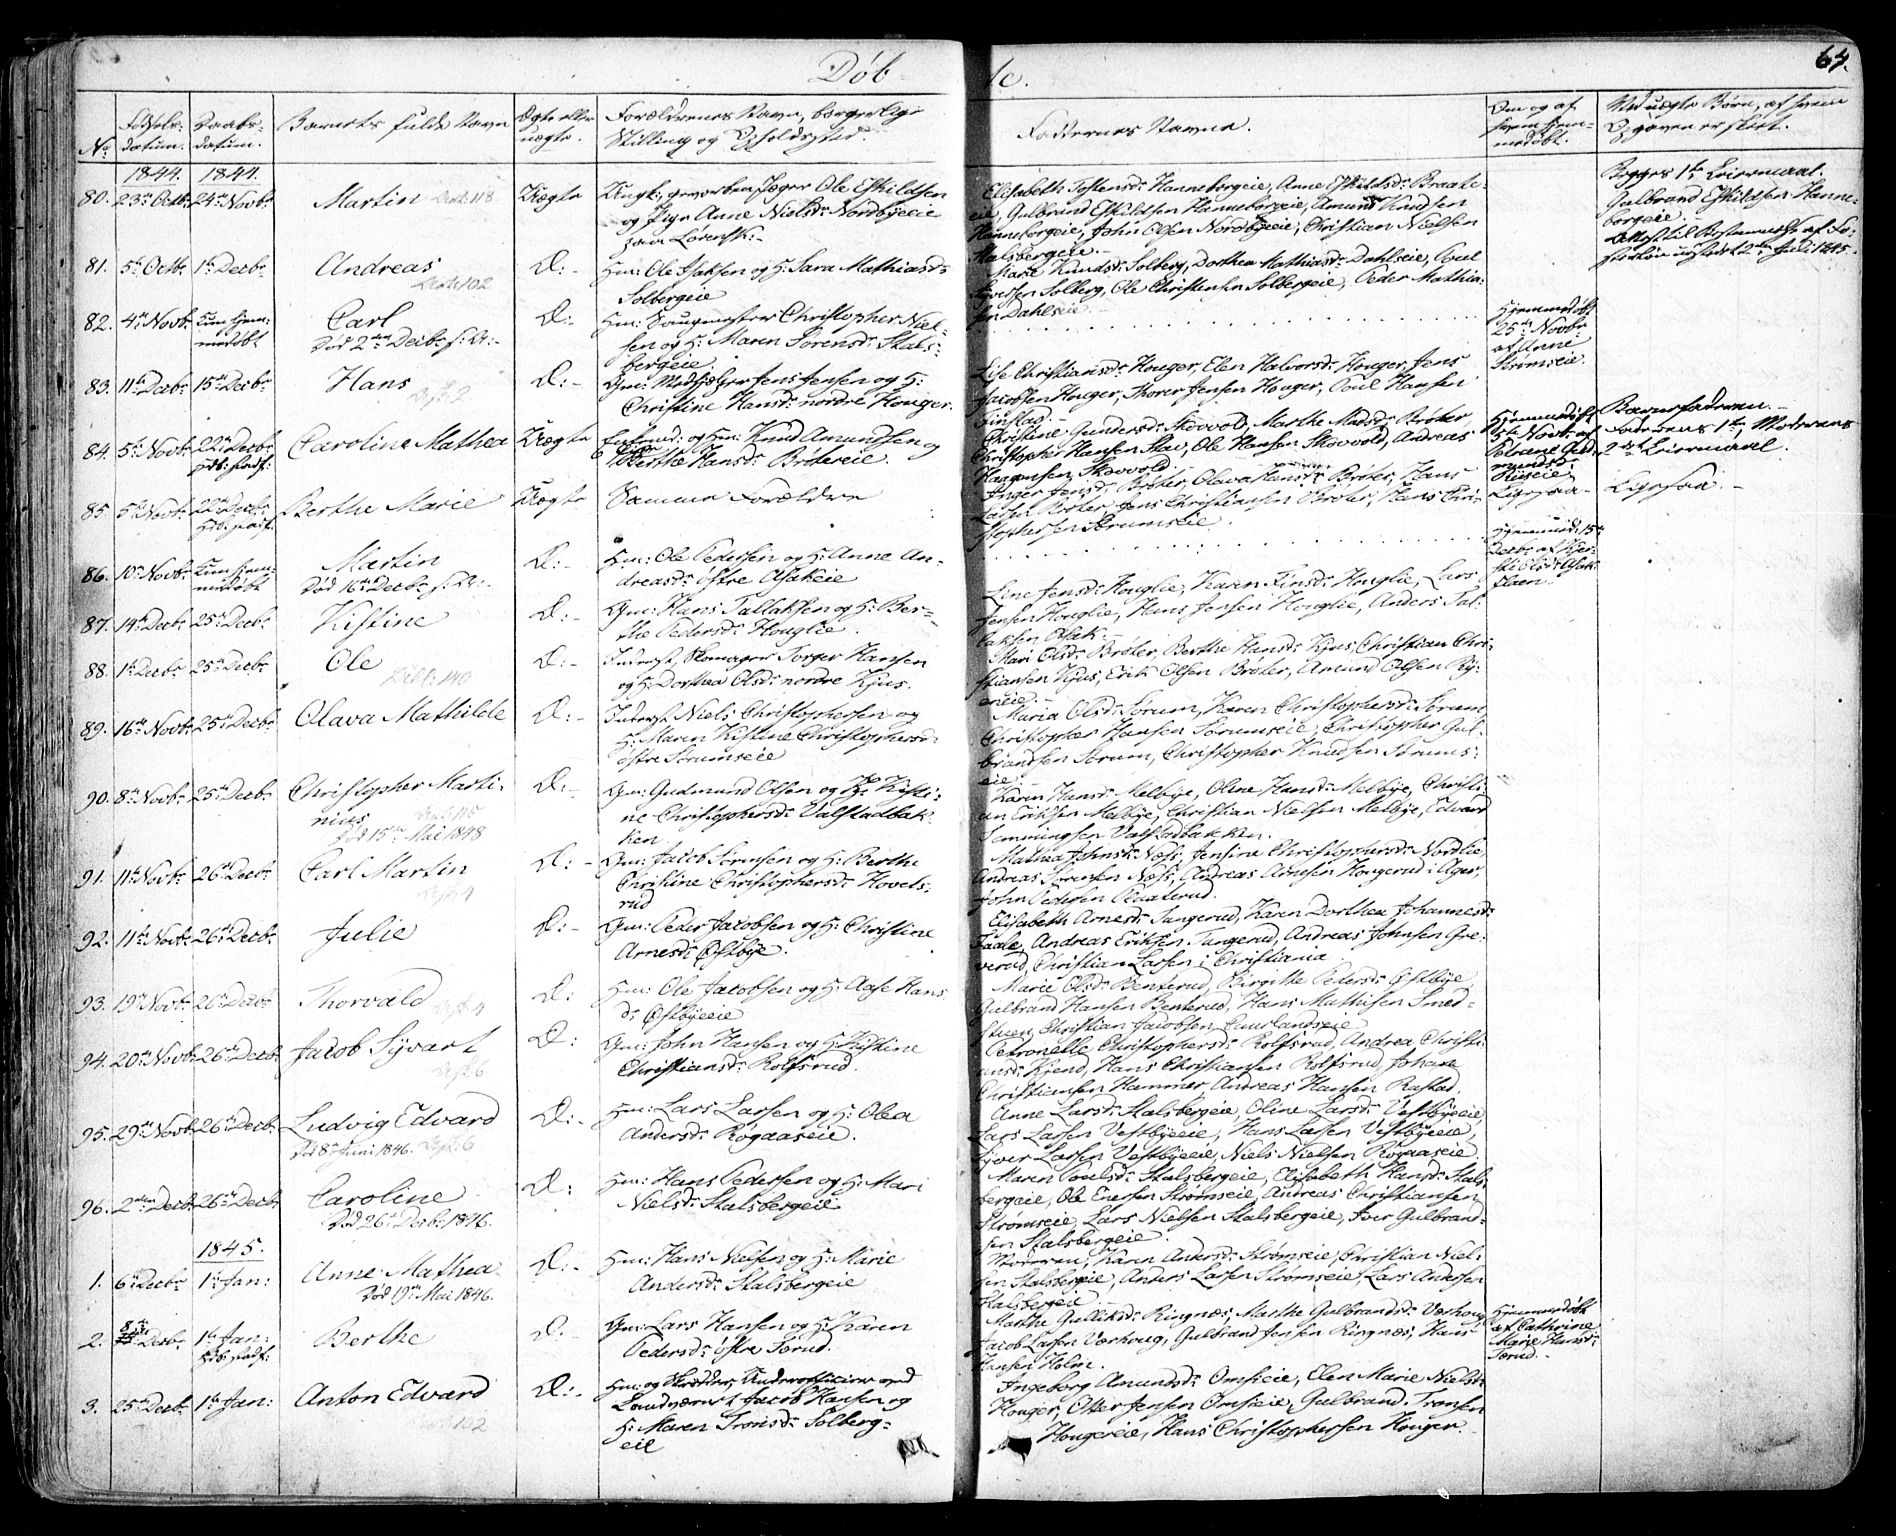 Døb-
de.
64.
No
Fødsels-
datum.
Daabs-
datum.
Barnets fulde Navn
Ægte eller
uægte.
Forældrenes Navn, borgerlige
Stilling og Opholdssted.
Faddernes Navne.
Om og af
hvem hjem-
medøbt.
Ved uægte Børn, af hvem
Opgaven er skeet.
1844. 1844.
80. 23de Octb: 24de Novb: Martin Uægte
Ungk: Jæger Ole Eskildsen
og Pige Anne Nielsd: Nordbyeeie
paa Lørensk:
Elisabeth Tostensd: Hanneborgeie, Anne Eskildsd: Braate-
eie, Gulbrand Eskildsen Hanneborgeie, Amund Knudsen
Hanneborgeie, John Olsen Nordbyeie, Christian Nielsen
Stalsbergeie.
Begges 1te Leiermaal.
Gulbrand Eskildsen Hanne-
borgeie.
81. 5te Octb: 1te Decb: Andreas D:-
Hm: Ole Isaksen og H: Sara Mathiasd:
Solbergeie
Marie Knudsd: Solberg, Dorthea Mathiasd: Dahlseie, Poul
Syvertsen Solberg, Ole Christensen Solbergeie, Peder Mathia-
sen Dahlseie.
82. 4de Novb: Kun hjem-
medøbt
Carl
Død 2den Decb: s: A:-
D:-
Hm: Saugmester Christopher Niel-
sen og H: Maren Sørensd: Stals-
bergeie
Hjemmedøbt
25de Novbr
af Anne
Strømseie.
83. 11te Decb: 15de Decb: Hans D:-
Gm: Jens Jensen og H:
Christine Hansd: nordre Houger.
Lise Christiansd: Houger, Elen Halvorsd: Houger, Jens
Jacobsen Houger, Thorer Jensen Houger, Poul Hansen
Tinstad.
84. 5te Novb: 22de Decb: Caroline Mathea Uægte
Knud Amundsen og
Berthe Hansd: Brøtereie.
Christine Gundersd: Skovvold, Marthe Madsd: Brøter,
Christopher Hansen Stav, Ole Hansen Skovvold, Andreas
Haagensen Skovvold.
Hjemmedøbt
5te Novb: af
Barnefaderen.
Faderens 1te, Moderens
2det Leiermaal.
85. 5te Novb: 22de Decb: Berthe Marie Uægte
Samme Forældre
Inger Jensd: Brøter, Olava Hansd: Brøter, Hans
Larsen Brøter, Jens Christiansen Brøter, Hans Chri-
stophersen Sørumseie.
Ligesaa
Ligesaa.
86. 10de Novb: Kun hjem-
medøbt
Martin
Død 16de Decb: s: A:-
D:-
Hm: Ole Pedersen og H: Anne An-
dreasd: østre Asakeie
Hjemmed: 15de
Decb: af Kjer-
sti Olsd: Asak-
87. 14de Decb: 25de Decb: Kistine D:-
Gm: Hans Tallaksen og H: Ber-
the Pedersd: Houglie.
Line Jensd: Houglie, Karen Finsd: Houglie, Lars
Jensen Houglie, Hans Jensen Houglie, Anders Tal-
laksen Asak.
88. 1te Decbr 25de Decb: Ole D:-
Inderst, Skomager Torger Hansen
og H: Dorthea Olsd: nordre Kjus.
Mari Olsd: Brøter, Berthe Hansd: Kjus, Christian Chri-
stiansen Kjus, Erik Olsen Brøter, Amund Olsen Ry-
ereie.
89. 16de Novb: 25de Decb: Olava Mathilde D:-
Inderst Niels Christophersen og
H: Maren Kistine Christophersd:
østre Sørumseie
Maria Olsd: Sørum, Karen Christophersd: Sørum,
Christopher Hansen Sørumseie, Christopher Gul-
brandsen Sørum, Christopher Knudsen Sørums-
eie.
90. 8de Novb: 25de Decb: Christopher Marti-
nius
Død 15de Mai 1848
D:-
Gm: Gudmund Olsen og H: Kisti-
ne Christophersd: Valstadbak-
ken
Karen Hansd: Melbye, Oline Hansd: Melbye, Christi-
an Eriksen Melbye, Christian Nielsen Melbye, Edvard
Semmingsen Valstadbakken.
91. 11te Novb: 26de Decb: Carl Martin D:-
Gm: Jacob Sørensen og H: Berthe
Christine Christophersd: Hovels-
rud
Mathea Johnsd: Næss, Jensine Christophersd: Nordlie,
Andreas Sørensen Næss, Andreas Arnesen Hougerud i Ager,
John Pedersen Plaaterud.
92. 11te Novb: 26de Decb: Julie D:-
Gm: Peder Jacobsen og H: Christine
Arnesd: Østbye.
Elisabeth Arnesd: Tangerud, Karen Dorthea Johannesd:
Faale, Andreas Eriksen Tangerud, Andreas Johnsen Gre-
verud, Christian Larsen i Christiania.
93. 19de Novb: 26de Decb: Thorvald D:
Hm: Ole Jacobsen og H: Aase Hans
d: Østbyeeie
Marie Olsd: Benterud, Birgitte Pedersd: Østbye,
Gulbrand Hansen Benterud, Hans Mathisen Smed-
stuen, Christian Jacobsen Cuurlandseie
94. 20de Novb: 26de Decb: Jacob Syvart D:
Gm: John Hansen og H: Kistine
Christiansd: Rolfsrud.
Petronelle Christophersd: Rolfsrud, Andrea Christi-
ansd: Kjend, Hans Christiansen Rolfsrud, Johan
Christiansen Hammer, Andreas Hansen Rastad.
95. 29de Novb: 26de Decb: Ludvig Edvard
Død 8de Juni 1846.
D:
Hm: Lars Larsen og H: Olea
Andersd: Rogaaseie.
Anne Larsd: Stalsbergeie, Oline Larsd: Vestbyeeie,
Lars Larsen Vestbyeeie, Hans Larsen Vestbyeeie,
Syver Larsen Vestbyeeie, Niels Nielsen Rogaaseie.
96. 2den Decb: 26de Decb: Caroline
Død 26de Decb: 1846.
D:
Hm: Hans Pedersen og H: Mari
Nielsd: Stalsbergeie
Maren Poulsd: Stalsbergeie, Elisabeth Hansd: Stals-
bergeie, Ole Enersen Strømseie, Andreas Christiansen
Strømseie, Lars Nielsen Stalsbergeie, Iver Gulbrand-
sen Stalsbergeie.
1845.
1. 6te Decbr 1te Jan: Anne Mathea
Død 19de Mai 1846.
D:-
Hm: Hans Nielsen og H: Marie
Andersd: Stalsbergeie
Moderen, Karen Andersd: Strømseie, Christian Niel-
sen Stalsbergeie, Anders Larsen Strømseie, Lars Andersen
Stalsbergeie.
2. 8de Decbr 1te Jan: Berthe D:
Gm: Lars Hansen og H: Karen
Pedersd: østre Tærud.
Marthe Gulliksd: Ringnæs, Marthe Gulbrandsd: Værhoug,
Jacob Larsen Værhoug, Gulbrand Jensen Ringnæs, Hans
Hansen Holm.
Hjemmedøbt
af Cathrine
Marie Hansd:
Tærud.
3. 25de Decb: 1te Jan: Anton Edvard D:-
Hm: og Skredder, Underofficier ved
Landværnet Jacob Hansen og
H: Maren Tronsd: Solberg-
eie
Ingeborg Amundsd: Omsieie, Elen Marie Nielsd:
Houger, Otter Jensen Omsieie, Gulbrand Tronsen
Hougereie, Hans Christophersen Houger.